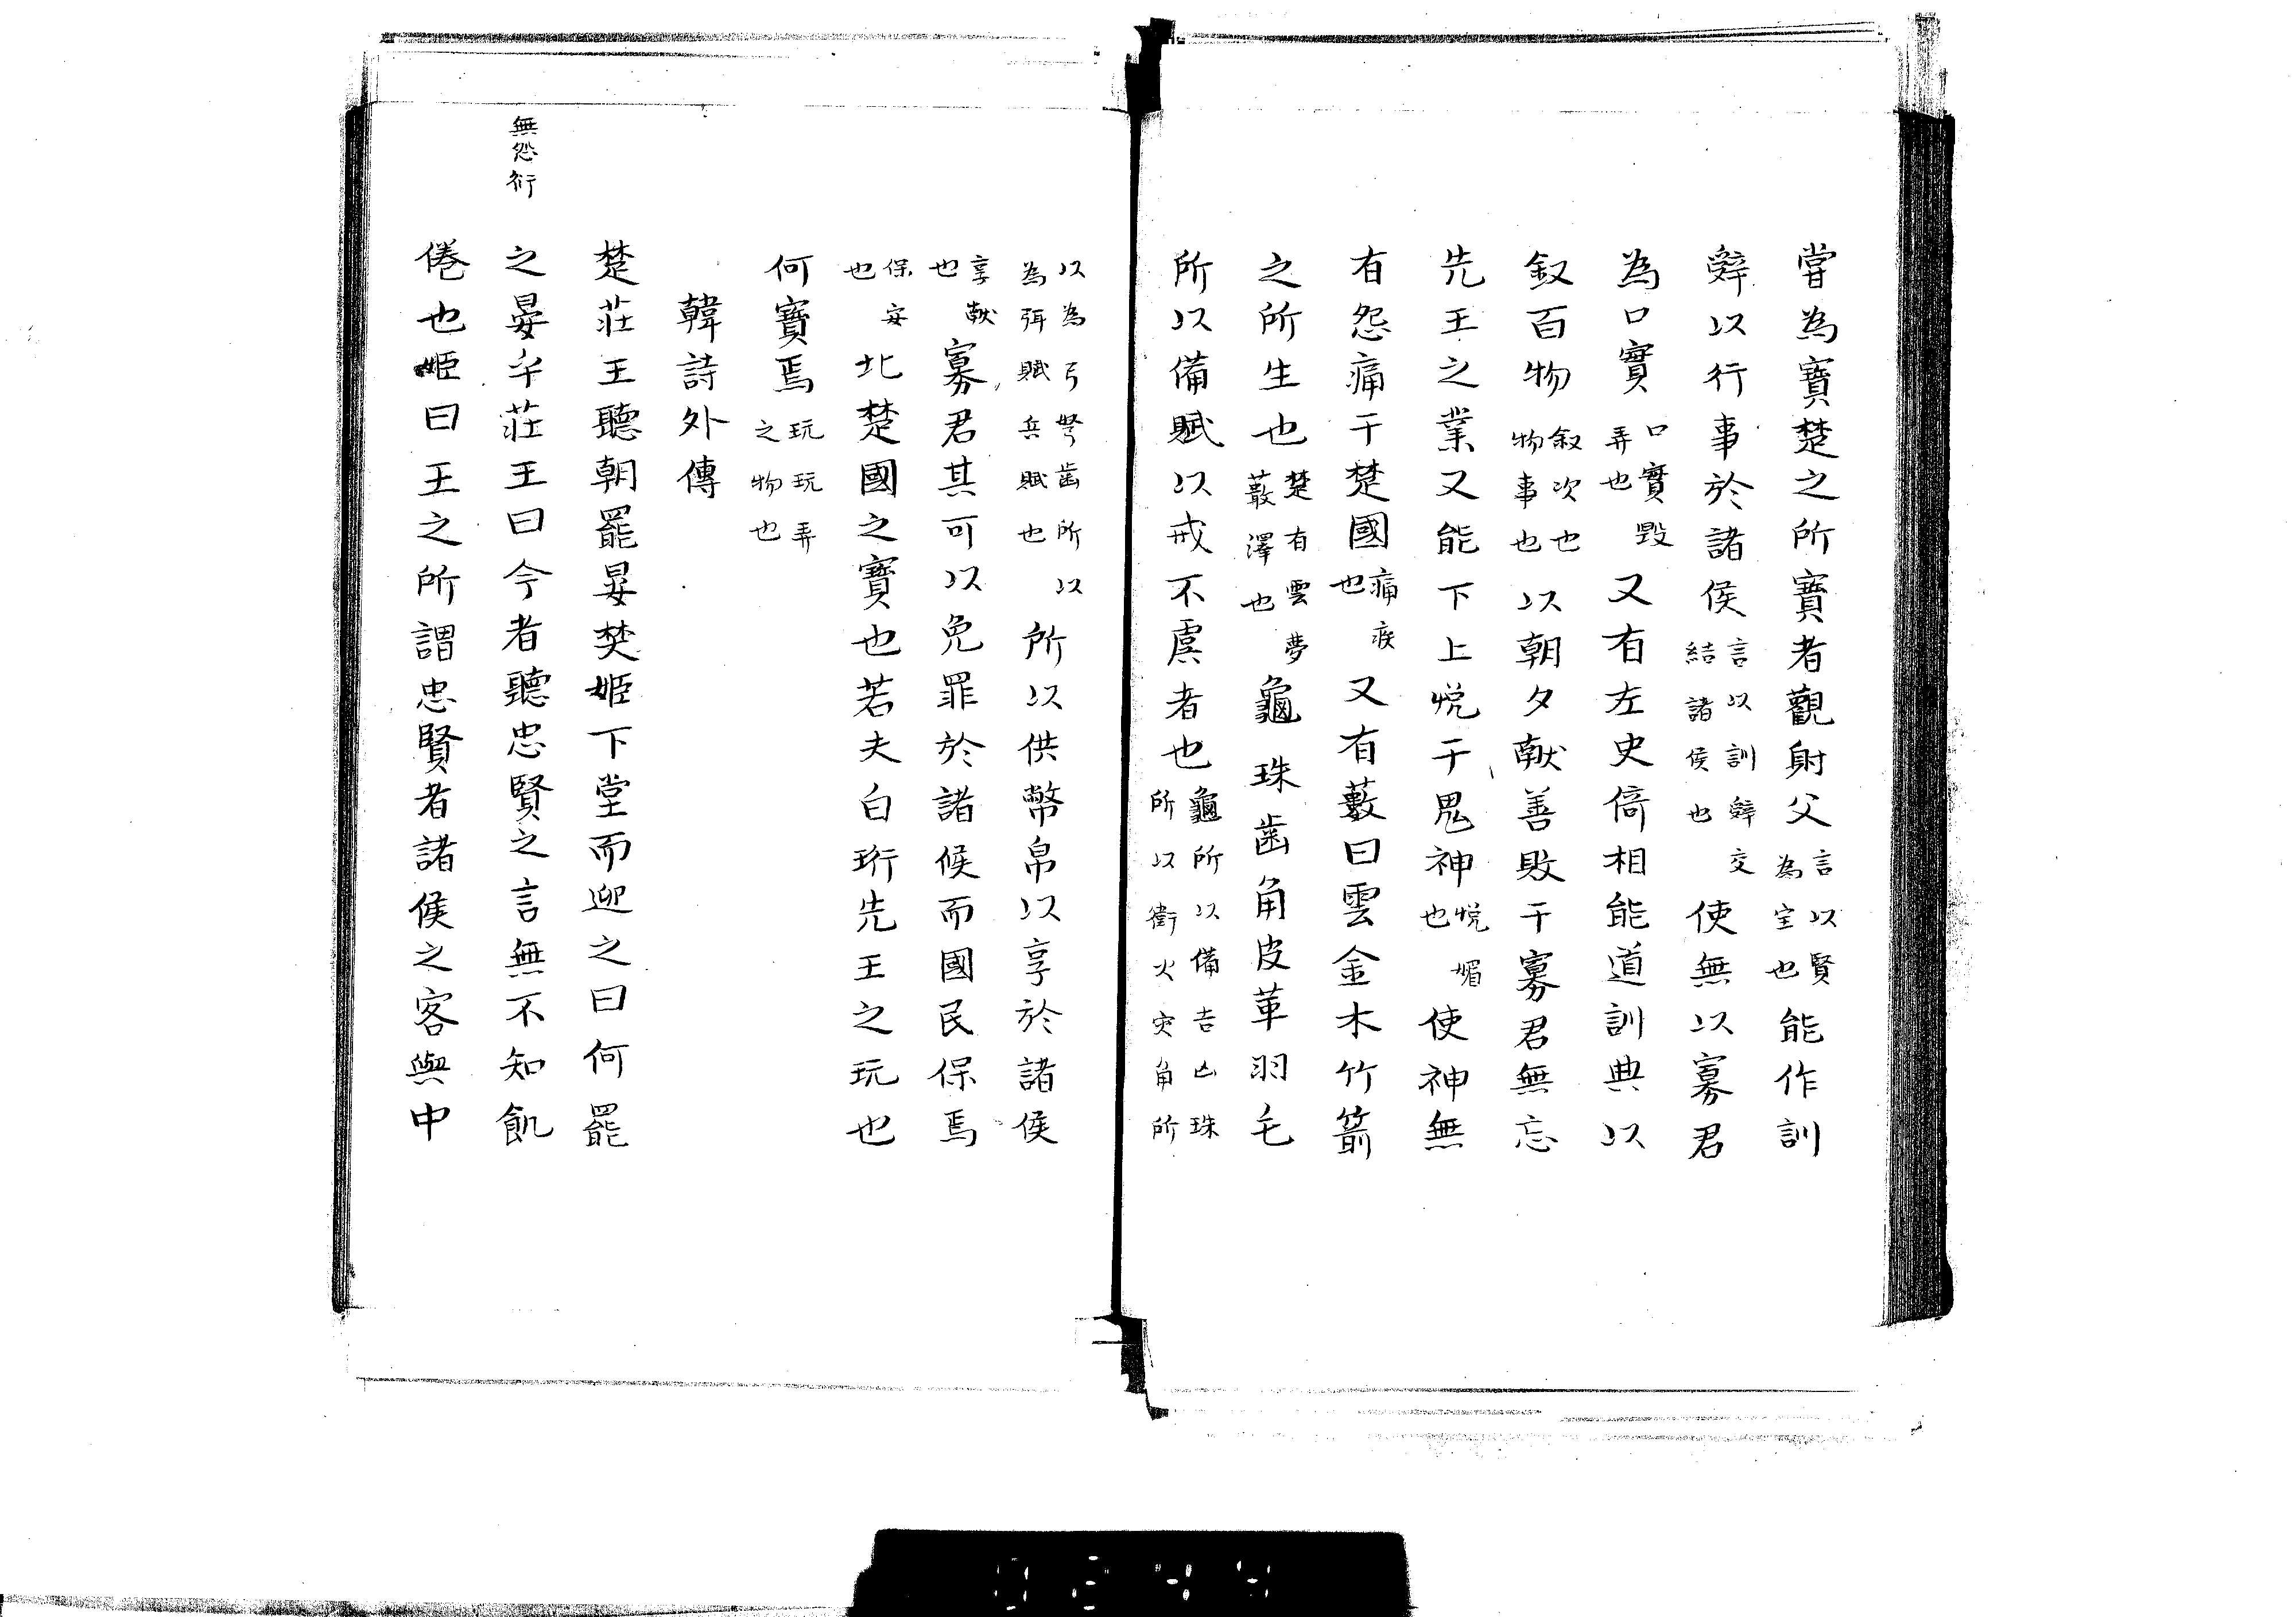 甞為寶楚之所寶者觀射父言以賢為宝也能作訓
辤以行事於諸侯言以訓辤交結諸侯也使無以寡君
為口實口實毀弄也又有左史倚相能道訓典以
叙百物叙次也物事也以朝夕献善敗于寡君無忘
先王之業又能下上悅于鬼神悅媚也使神無
有怨痛于楚國痛疾也又有藪曰雲金木竹箭
之所生也楚有雲夢藪澤也龜珠齒角皮革羽毛
所以備賦以戒不虞者也龜所以備吉凶珠所以衛火灾角所
以為弓弩齒所以為弭賦兵賦也所以供幣帛以享於諸侯
享献也寡君其可以免罪於諸候而國民保焉
保安也北楚國之寶也若夫白珩先王之玩也
何寶焉玩玩弄之物也
韓詩外傳
楚莊王聽朝罷晏樊姬下堂而迎之曰何罷
之晏乎莊王曰今者聽忠賢之言無不知飢
倦也姬曰王之所謂忠賢者諸侯之客與中
無怨衍